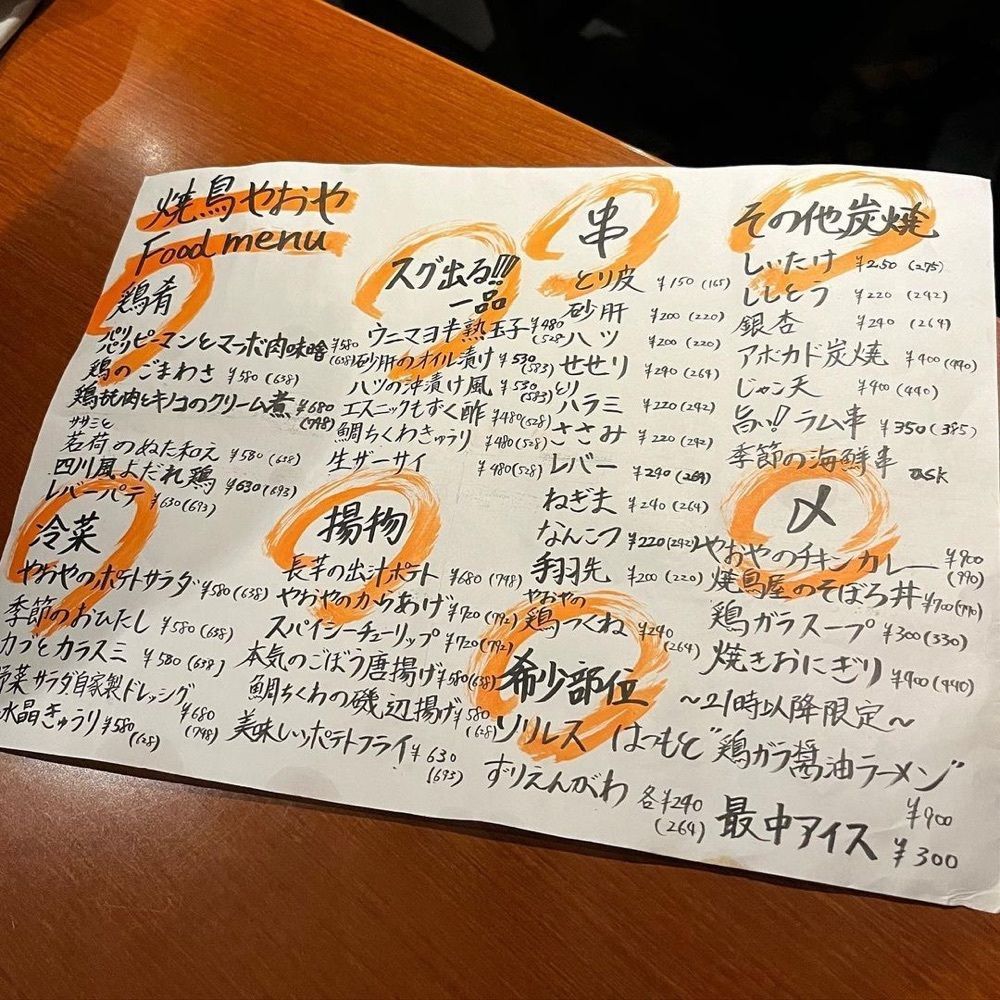 焼鳥やおや
Food menu
鶏肴
パリパリピーマンとマーボ肉味噌 ¥580 (638)
鶏のごまわさ ¥580 (638)
鶏ももとキノコのクリーム煮 ¥680 (748)
ササミと
茗荷のぬた和え ¥580 (638)
四川風よだれ鶏 ¥630 (693)
レバーパテ ¥630 (693)
冷菜
やおやのポテトサラダ ¥580 (638)
季節のおひたし ¥580 (638)
カブとカラスミ ¥580 (638)
野菜サラダ自家製ドレッシング ¥680 (748)
水晶きゅうり ¥580 (628)
スグ出る!!!
一品
ウニマヨ半熟玉子 ¥480 (528)
砂肝のオイル漬け ¥530 (583)
ハツの沖漬け風 ¥530 (583)
エスニックもずく酢 ¥480 (528)
鯛ちくわきゅうり ¥480 (528)
生ザーサイ ¥480 (528)
揚物
長芋の出汁ポテト ¥680 (748)
やおやのからあげ ¥720 (792)
スパイシーチューリップ ¥720 (792)
本気のごぼう唐揚げ ¥580 (638)
鯛ちくわの磯辺揚げ ¥580 (628)
美味しいッポテトフライ ¥630 (693)
串
とり皮 ¥150 (165)
砂肝 ¥200 (220)
ハツ ¥200 (220)
せせり ¥240 (264)
とり
ハラミ ¥220 (242)
ささみ ¥220 (242)
レバー ¥240 (264)
ねぎま ¥240 (264)
なんこつ ¥220 (242)
手羽先 ¥200 (220)
やおやの
鶏つくね ¥240 (264)
希少部位
ソリレス はつもと
ずりえんがわ 各¥240 (264)
その他炭焼
しいたけ ¥250 (275)
ししとう ¥220 (242)
銀杏 ¥240 (264)
アボカド炭焼 ¥400 (440)
じゃこ天 ¥400 (440)
旨い!! ラム串 ¥350 (385)
季節の海鮮串 ask
〆
やおやのチキンカレー ¥900 (990)
焼鳥屋のそぼろ丼 ¥700 (770)
鶏ガラスープ ¥300 (330)
焼きおにぎり ¥400 (440)
～21時以降限定～
"鶏ガラ醤油ラーメン" ¥900
最中アイス ¥300